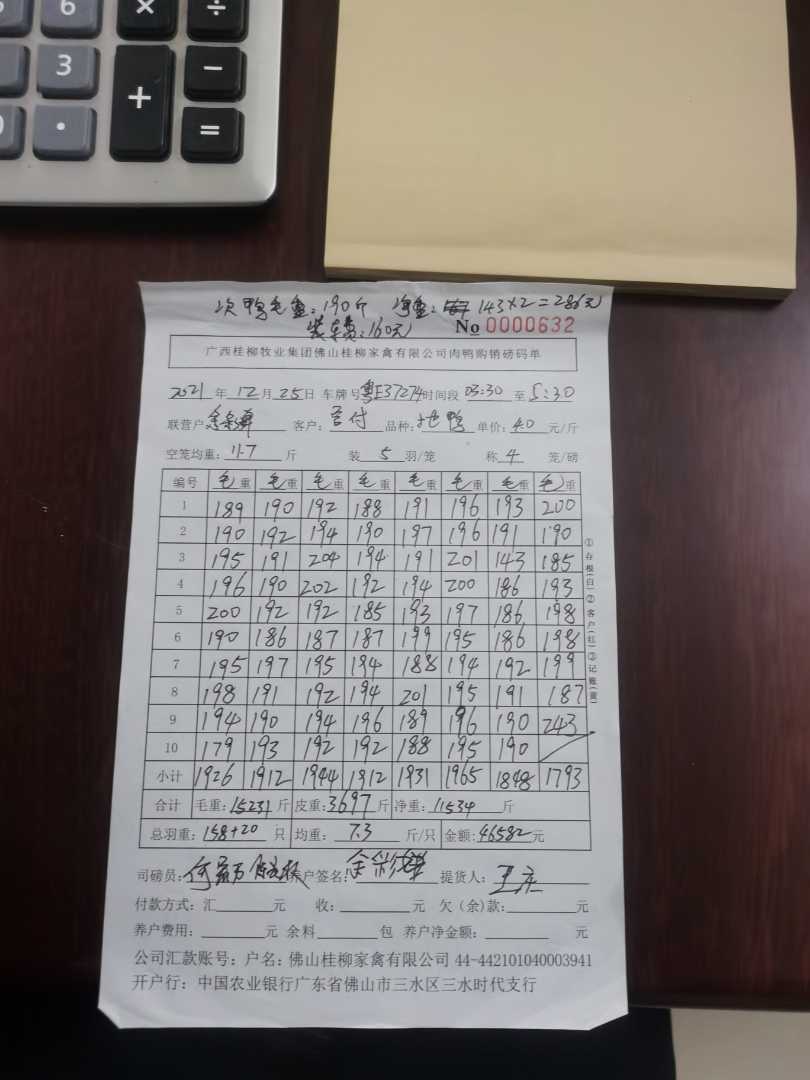 6 × ÷
3 −
+
· =
次鸭毛重:190斤 净重: 143×2=286元
装车费:160元 No 0000632
广西桂柳牧业集团佛山桂柳家禽有限公司肉鸭购销磅码单
2021年12月25日 车牌号粤E37274时间段03:30至5:30
联营户 客户: 品种: 鸭 单价:4.0元/斤
空笼均重:11.7斤 装5羽/笼 称4笼/磅
编号 毛重 毛重 毛重 毛重 毛重 毛重 毛重 毛重
1 189 190 192 188 191 196 193 200
2 190 192 194 190 197 196 191 190
3 195 191 204 194 191 201 143 185
4 196 190 202 192 194 200 186 193
5 200 192 192 185 193 197 186 198
6 190 186 187 187 199 195 186 198
7 195 197 195 194 188 194 192 199
8 198 191 192 194 201 195 191 187
9 194 190 194 196 189 196 190 243
10 179 193 192 192 188 195 190
小计 1926 1912 1944 1912 1931 1965 1848 1793
合计 毛重:15231斤 皮重:3697斤 净重:11534斤
总羽重:158+20只 均重:7.3斤/只 金额:46582元
司磅员: 养户签名:余彩 提货人:
付款方式:汇 元 收: 元 欠(余)款: 元
养户费用: 元 余料 包 养户净金额: 元
公司汇款账号:户名:佛山桂柳家禽有限公司 44-442101040003941
开户行:中国农业银行广东省佛山市三水区三水时代支行
①存根(白)②客户(红)③记账(黄)